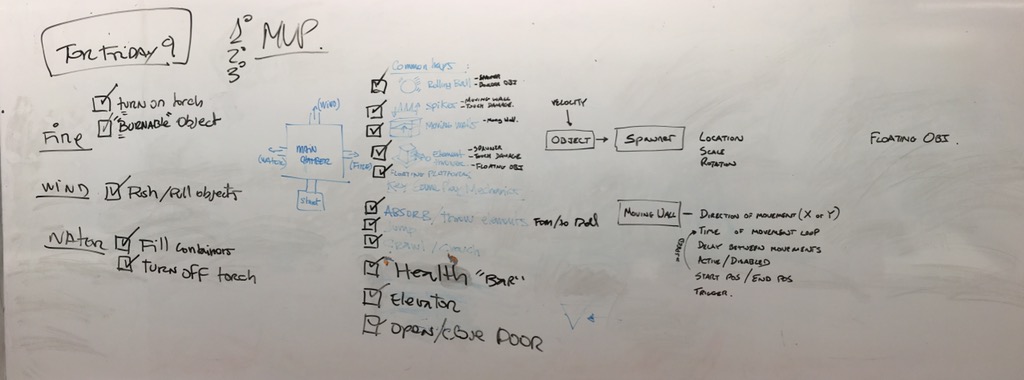 FOR FRIDAY
1°
2°
3°
MVP.
TURN ON TORCH
FIRE
"BURNABLE" OBJECT
WIND
PUSH/PULL OBJECTS
WATER
FILL CONTAINERS
TURN OFF TORCH
(WIND)
(WATER)
MAIN CHAMBER
(FIRE)
START
COMMON TRAPS:
ROLLING BALL
- SPAWNER
SPIKES
- MOVING WALL
- TOUCH DAMAGE.
MOVING WALLS
- MOVING WALL.
- SPAWNER
- TOUCH DAMAGE
- FLOATING OBJ
FLOATING PLATFORMS
MECHANICS
ABSORB/THROW ELEMENTS
JUMP
CRAWL/CROUCH
HEALTH "BAR"
ELEVATOR
OPEN/CLOSE DOOR
VELOCITY
OBJECT
SPAWNER
LOCATION
SCALE
ROTATION
FLOATING OBJ.
MOVING WALL
- DIRECTION OF MOVEMENT (X OR Y)
TIME OF MOVEMENT LOOP
SPEED
DELAY BETWEEN MOVEMENTS
ACTIVE/DISABLED
START POS/END POS
TRIGGER.